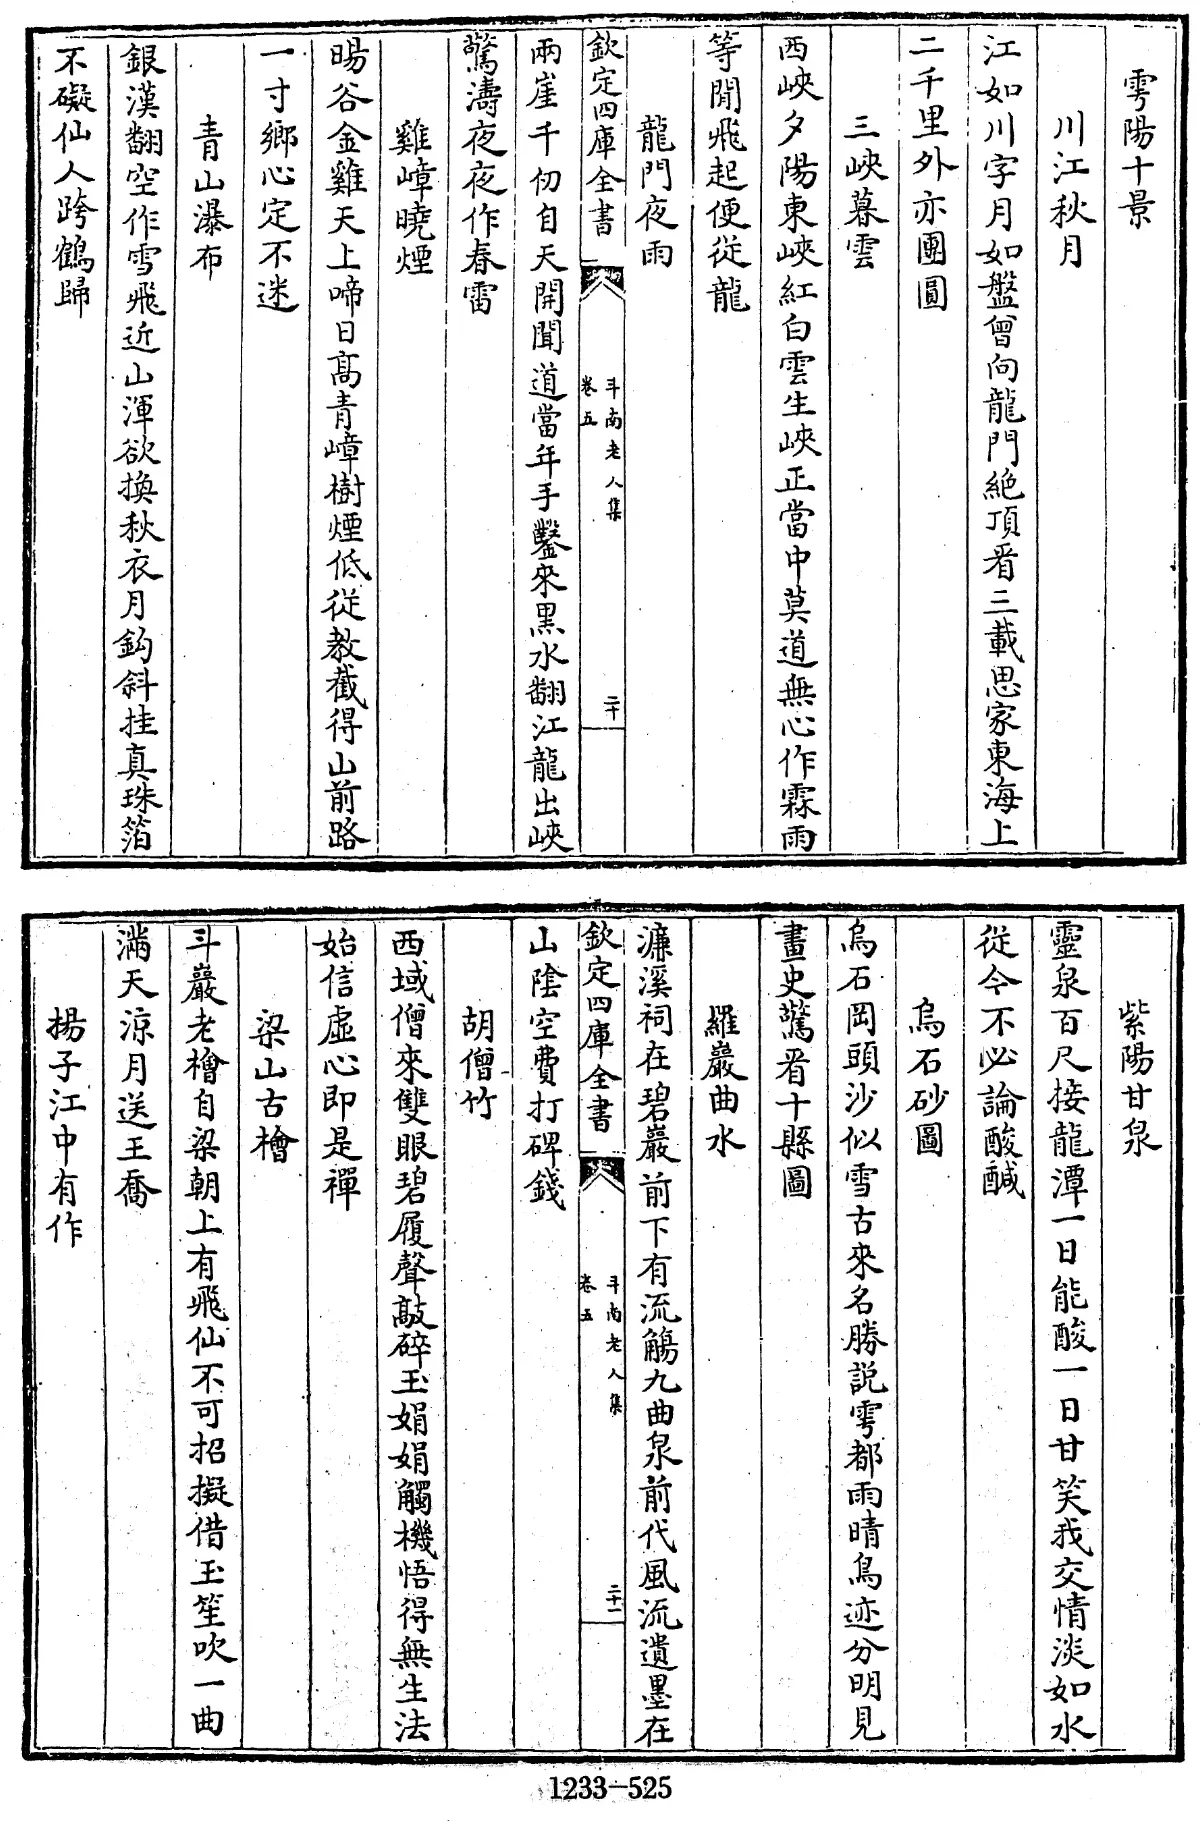 雩陽十景
川江秋月
江如川字月如盤曾向龍門絶頂看三載思家東海上
二千里外亦團圓
三峽暮雲
西峽夕陽東峽紅白雲生峽正當中莫道無心作霖雨
等閒飛起便從龍
龍門夜雨
欽定四庫全書
斗南老人集
卷五
二十
兩崖千仞自天開聞道當年手鑿來黑水翻江龍出峽
驚濤夜夜作春雷
雞嶂曉煙
暘谷金雞天上啼日髙青嶂樹煙低從教截得山前路
一寸鄉心定不迷
青山瀑布
銀漢翻空作雪飛近山渾欲換秋衣月鈎斜挂真珠箔
不礙仙人跨鶴歸
紫陽甘泉
靈泉百尺接龍潭一日能酸一日甘笑我交情淡如水
從今不必論酸鹹
烏石砂圖
烏石岡頭沙似雪古來名勝說雩都雨晴鳥迹分明見
畫史驚看十縣圖
羅巖曲水
濂溪祠在碧巖前下有流觴九曲泉前代風流遺墨在
欽定四庫全書
斗南老人集
卷五
二十一
山陰空費打碑錢
胡僧竹
西域僧來雙眼碧履聲敲碎玉娟娟觸機悟得無生法
始信虛心即是禪
梁山古檜
斗巖老檜自梁朝上有飛仙不可招擬借玉笙吹一曲
滿天涼月送王喬
揚子江中有作
1233-525